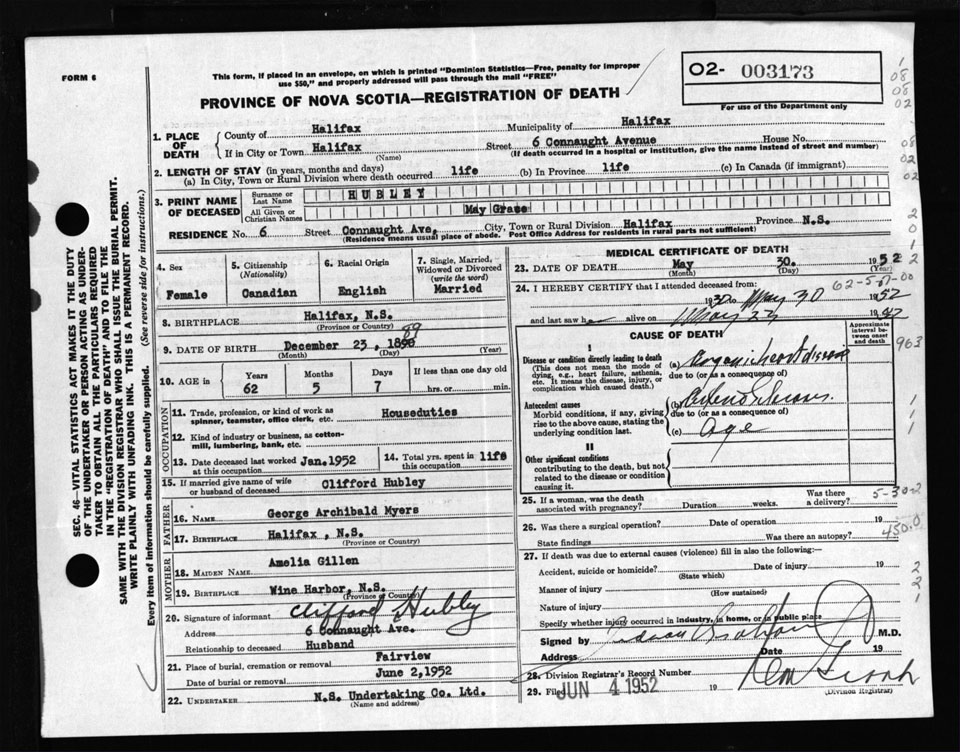 FORM 6
This form, if placed in an envelope, on which is printed "Dominion Statistics—Free, penalty for improper
use $50," and properly addressed will pass through the mail "FREE"
PROVINCE OF NOVA SCOTIA—REGISTRATION OF DEATH
O2- 003173
For use of the Department only
1
08
08
02
1. PLACE OF DEATH
County of Halifax Municipality of Halifax
If in City or Town Halifax Street 6 Connaught Avenue House No.
(Name) (If death occurred in a hospital or institution, give the name instead of street and number)
08
02
02
2. LENGTH OF STAY (in years, months and days)
(a) In City, Town or Rural Division where death occurred life (b) In Province life (c) In Canada (if immigrant)
3. PRINT NAME OF DECEASED
Surname or Last Name HUBLEY
All Given or Christian Names May Grace
RESIDENCE No. 6 Street Connaught Ave. City, Town or Rural Division Halifax Province N.S.
(Residence means usual place of abode. Post Office Address for residents in rural parts not sufficient)
2
0
1
2
4. Sex
Female
5. Citizenship
(Nationality)
Canadian
6. Racial Origin
English
7. Single, Married,
Widowed or Divorced
(write the word)
Married
8. BIRTHPLACE Halifax, N.S.
(Province or Country)
89
9. DATE OF BIRTH December 23, 1890
(Month) (Day) (Year)
10. AGE in
Years Months Days If less than one day old
62 5 7 hrs. or min.
OCCUPATION
11. Trade, profession, or kind of work as
spinner, teamster, office clerk, etc. Houseduties
12. Kind of industry or business, as cotton-
mill, lumbering, bank, etc.
13. Date deceased last worked
at this occupation Jan.1952
14. Total yrs. spent in
this occupation life
15. If married give name of wife
or husband of deceased Clifford Hubley
FATHER
16. NAME George Archibald Myers
17. BIRTHPLACE Halifax, N.S.
(Province or Country)
MOTHER
18. MAIDEN NAME Amelia Gillen
19. BIRTHPLACE Wine Harbor, N.S.
(Province or Country)
20. Signature of informant Clifford Hubley
Address 6 Connaught Ave.
Relationship to deceased Husband
21. Place of burial, cremation or removal Fairview
Date of burial or removal June 2,1952
22. UNDERTAKER N.S. Undertaking Co. Ltd.
(Name and address)
MEDICAL CERTIFICATE OF DEATH
23. DATE OF DEATH May 30. 1952
(Month) (Day) (Year)
24. I HEREBY CERTIFY that I attended deceased from:
May 30 1952
and last saw her alive on May 19
CAUSE OF DEATH
Approximate
interval
between onset
and death
963
I
Disease or condition directly leading to death
(This does not mean the mode of
dying, e.g., heart failure, asthenia,
etc. It means the disease, injury, or
complication which caused death.)
(a) Organic heart disease
due to (or as a consequence of)
Antecedent causes
Morbid conditions, if any, giving
rise to the above cause, stating the
underlying condition last.
(b)
due to (or as a consequence of)
(c) Age
II
Other significant conditions
contributing to the death, but not
related to the disease or condition
causing it.
1
1
1
25. If a woman, was the death
associated with pregnancy? Duration weeks. Was there
a delivery?
5-30-2
26. Was there a surgical operation? Date of operation 19
State findings Was there an autopsy?
450.0
27. If death was due to external causes (violence) fill in also the following:—
Accident, suicide or homicide? Date of injury 19
(State which)
Manner of injury
(How sustained)
Nature of injury
Specify whether injury occurred in industry, in home, or in public place
2
2
1
Signed by M.D.
Address Date 19
28. Division Registrar's Record Number
29. Filed JUN 4 1952 19
(Division Registrar)
SEC. 46—VITAL STATISTICS ACT MAKES IT THE DUTY
OF THE UNDERTAKER OR PERSON ACTING AS UNDER-
TAKER TO OBTAIN ALL THE PARTICULARS REQUIRED
IN THE "REGISTRATION OF DEATH" AND TO FILE THE
SAME WITH THE DIVISION REGISTRAR WHO SHALL ISSUE THE BURIAL PERMIT.
WRITE PLAINLY WITH UNFADING INK. THIS IS A PERMANENT RECORD.
Every item of information should be carefully supplied. (See reverse side for instructions.)